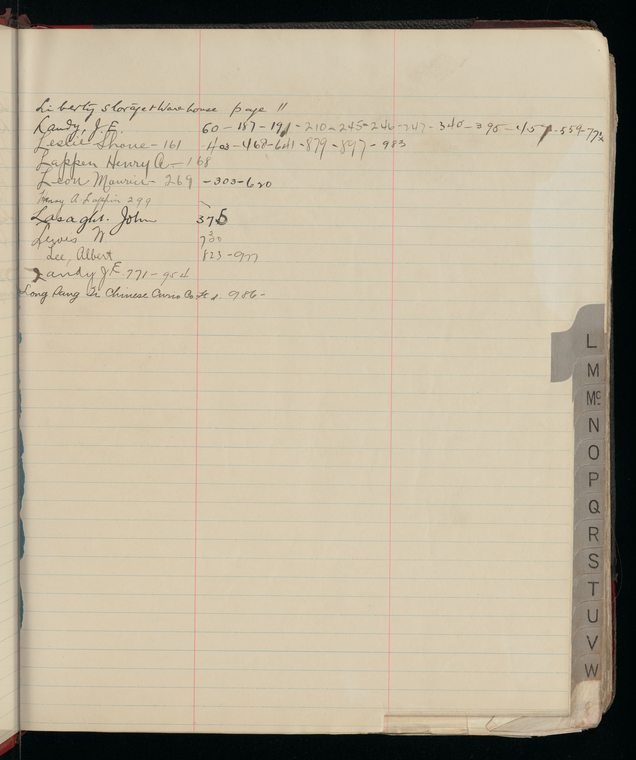 Liberty Storage & Warehouse page 11
Landy, J. E. 60-187-191-210-245-246-247-340-390-457-559-772
Leslie Shone-161 -403-468-641-879-897-983
Lappen Henry A-168
Leon Maurice-269 -303-620
Mary A Lappin 299
Lasaght. John 375
W 700
Lee, Albert 823-977
Landy J E. 771-954
Long Chinese Curio Co Ltd. 986-
L
M
Mc
N
O
P
Q
R
S
T
U
V
W